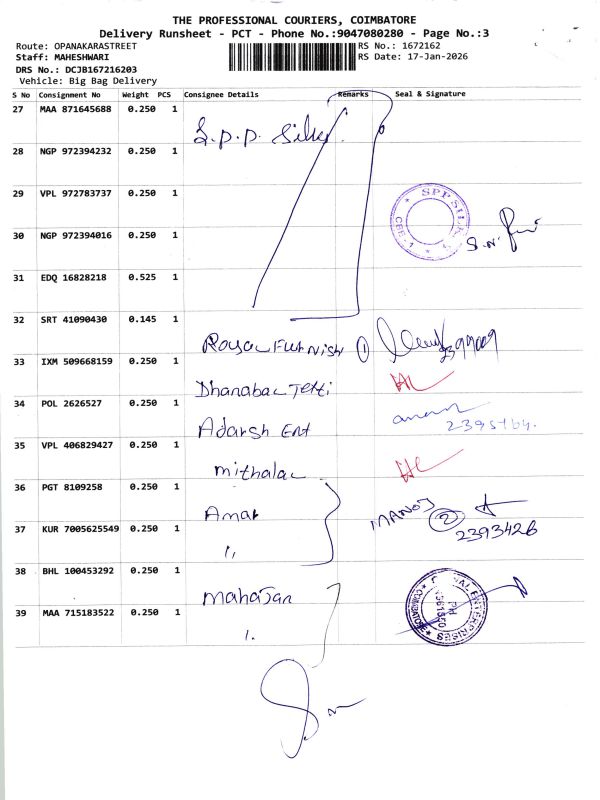 THE PROFESSIONAL COURIERS, COIMBATORE
Delivery Runsheet - PCT - Phone No.:9047080280 - Page No.:3
Route: OPANAKARASTREET
RS No.: 1672162
Staff: MAHESHWARI
RS Date: 17-Jan-2026
DRS No.: DCJB167216203
Vehicle: Big Bag Delivery
S No Consignment No Weight PCS Consignee Details Remarks Seal & Signature
27 MAA 871645688 0.250 1 S.P.P. Silks
28 NGP 972394232 0.250 1
29 VPL 972783737 0.250 1
30 NGP 972394016 0.250 1
31 EDQ 16828218 0.525 1
32 SRT 41090430 0.145 1 Royal Furnish 1
33 IXM 509668159 0.250 1 Dhanabal Jetti
34 POL 2626527 0.250 1 Adarsh Ent
35 VPL 406829427 0.250 1 mithalal
36 PGT 8109258 0.250 1 Amar MANOJ 2
37 KUR 7005625549 0.250 1 2393426
38 BHL 100453292 0.250 1 mahajan
39 MAA 715183522 0.250 1